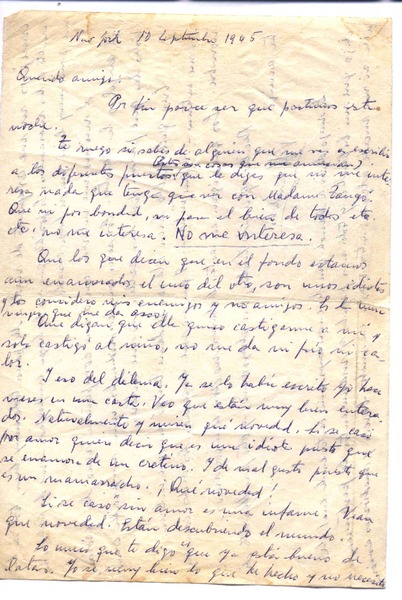 New York 10 Septiembre 1945
Querido amigo:
Por fin parece ser que partimos esta
noche.
Te ruego si sabes de alguien que me va a escribir
(estas son cosas que me anuncian)
a los diferentes puertos que le digas que no me inte
resa nada que tenga que ver con Madame Tango.
Que ni por bondad, ni para el bien de todos etc.
etc. no me interesa. No me interesa.
Que los que decían que en el fondo estamos
aun enamorados el uno del otro, son unos idiotas
y los considero mis enemigos y no amigos. Es la
que me da asco.
Que digan que ella quiso castigarme a mí y
solo castigó al niño, no me da ni frío ni ca
lor.
Y eso del dilema. Ya se lo había escrito yo hace
meses en una carta. Veo que están muy bien entera
dos. Naturalmente y miren qué novedad. Si se casó
por amor quiere decir que es una idiota puesto que
se enamora de un cretino. Y de mal gusto puesto que
es un mamarracho. ¡Qué novedad!
Si se casó sin amor es una infame. Vean
que novedad. Están descubriendo el mundo.
Lo único que te digo es que ya está bueno de
latas. Yo se muy bien lo que he hecho y no necesito